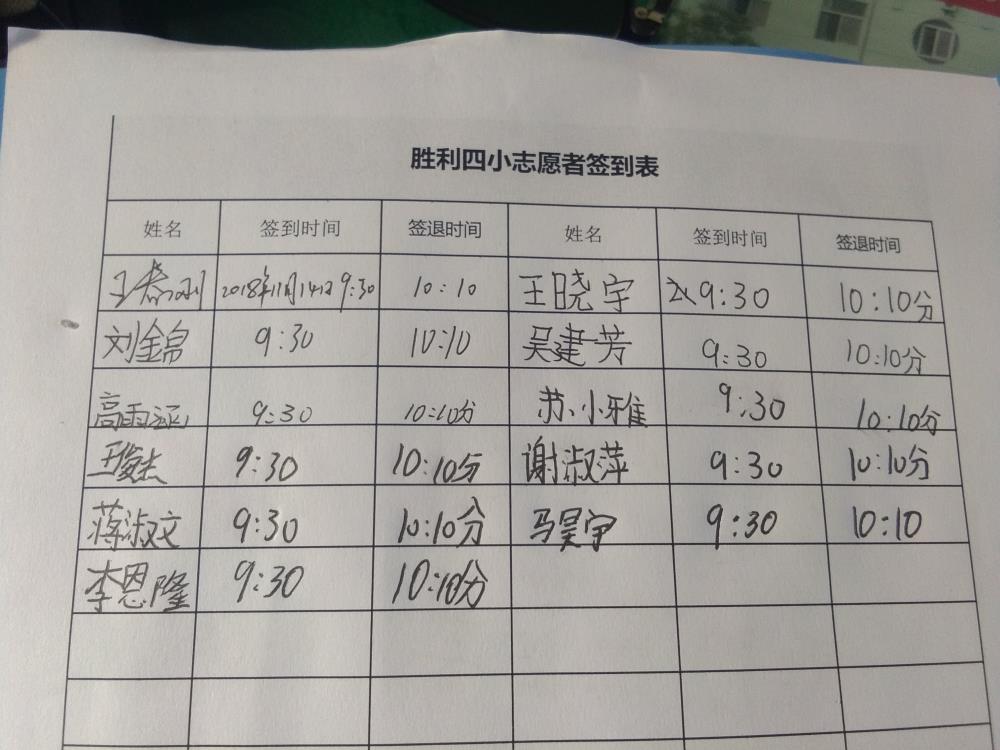 胜利四小志愿者签到表
姓名 签到时间 签退时间 姓名 签到时间 签退时间
王春刚 2018年11月14日 9:30 10:10 王晓宇 9:30 10:10分
刘金帛 9:30 10:10 吴建芳 9:30 10:10分
高雨涵 9:30 10:10分 苏小雅 9:30 10:10分
王俊杰 9:30 10:10分 谢淑萍 9:30 10:10分
蒋淑文 9:30 10:10分 马昊宇 9:30 10:10
李恩隆 9:30 10:10分